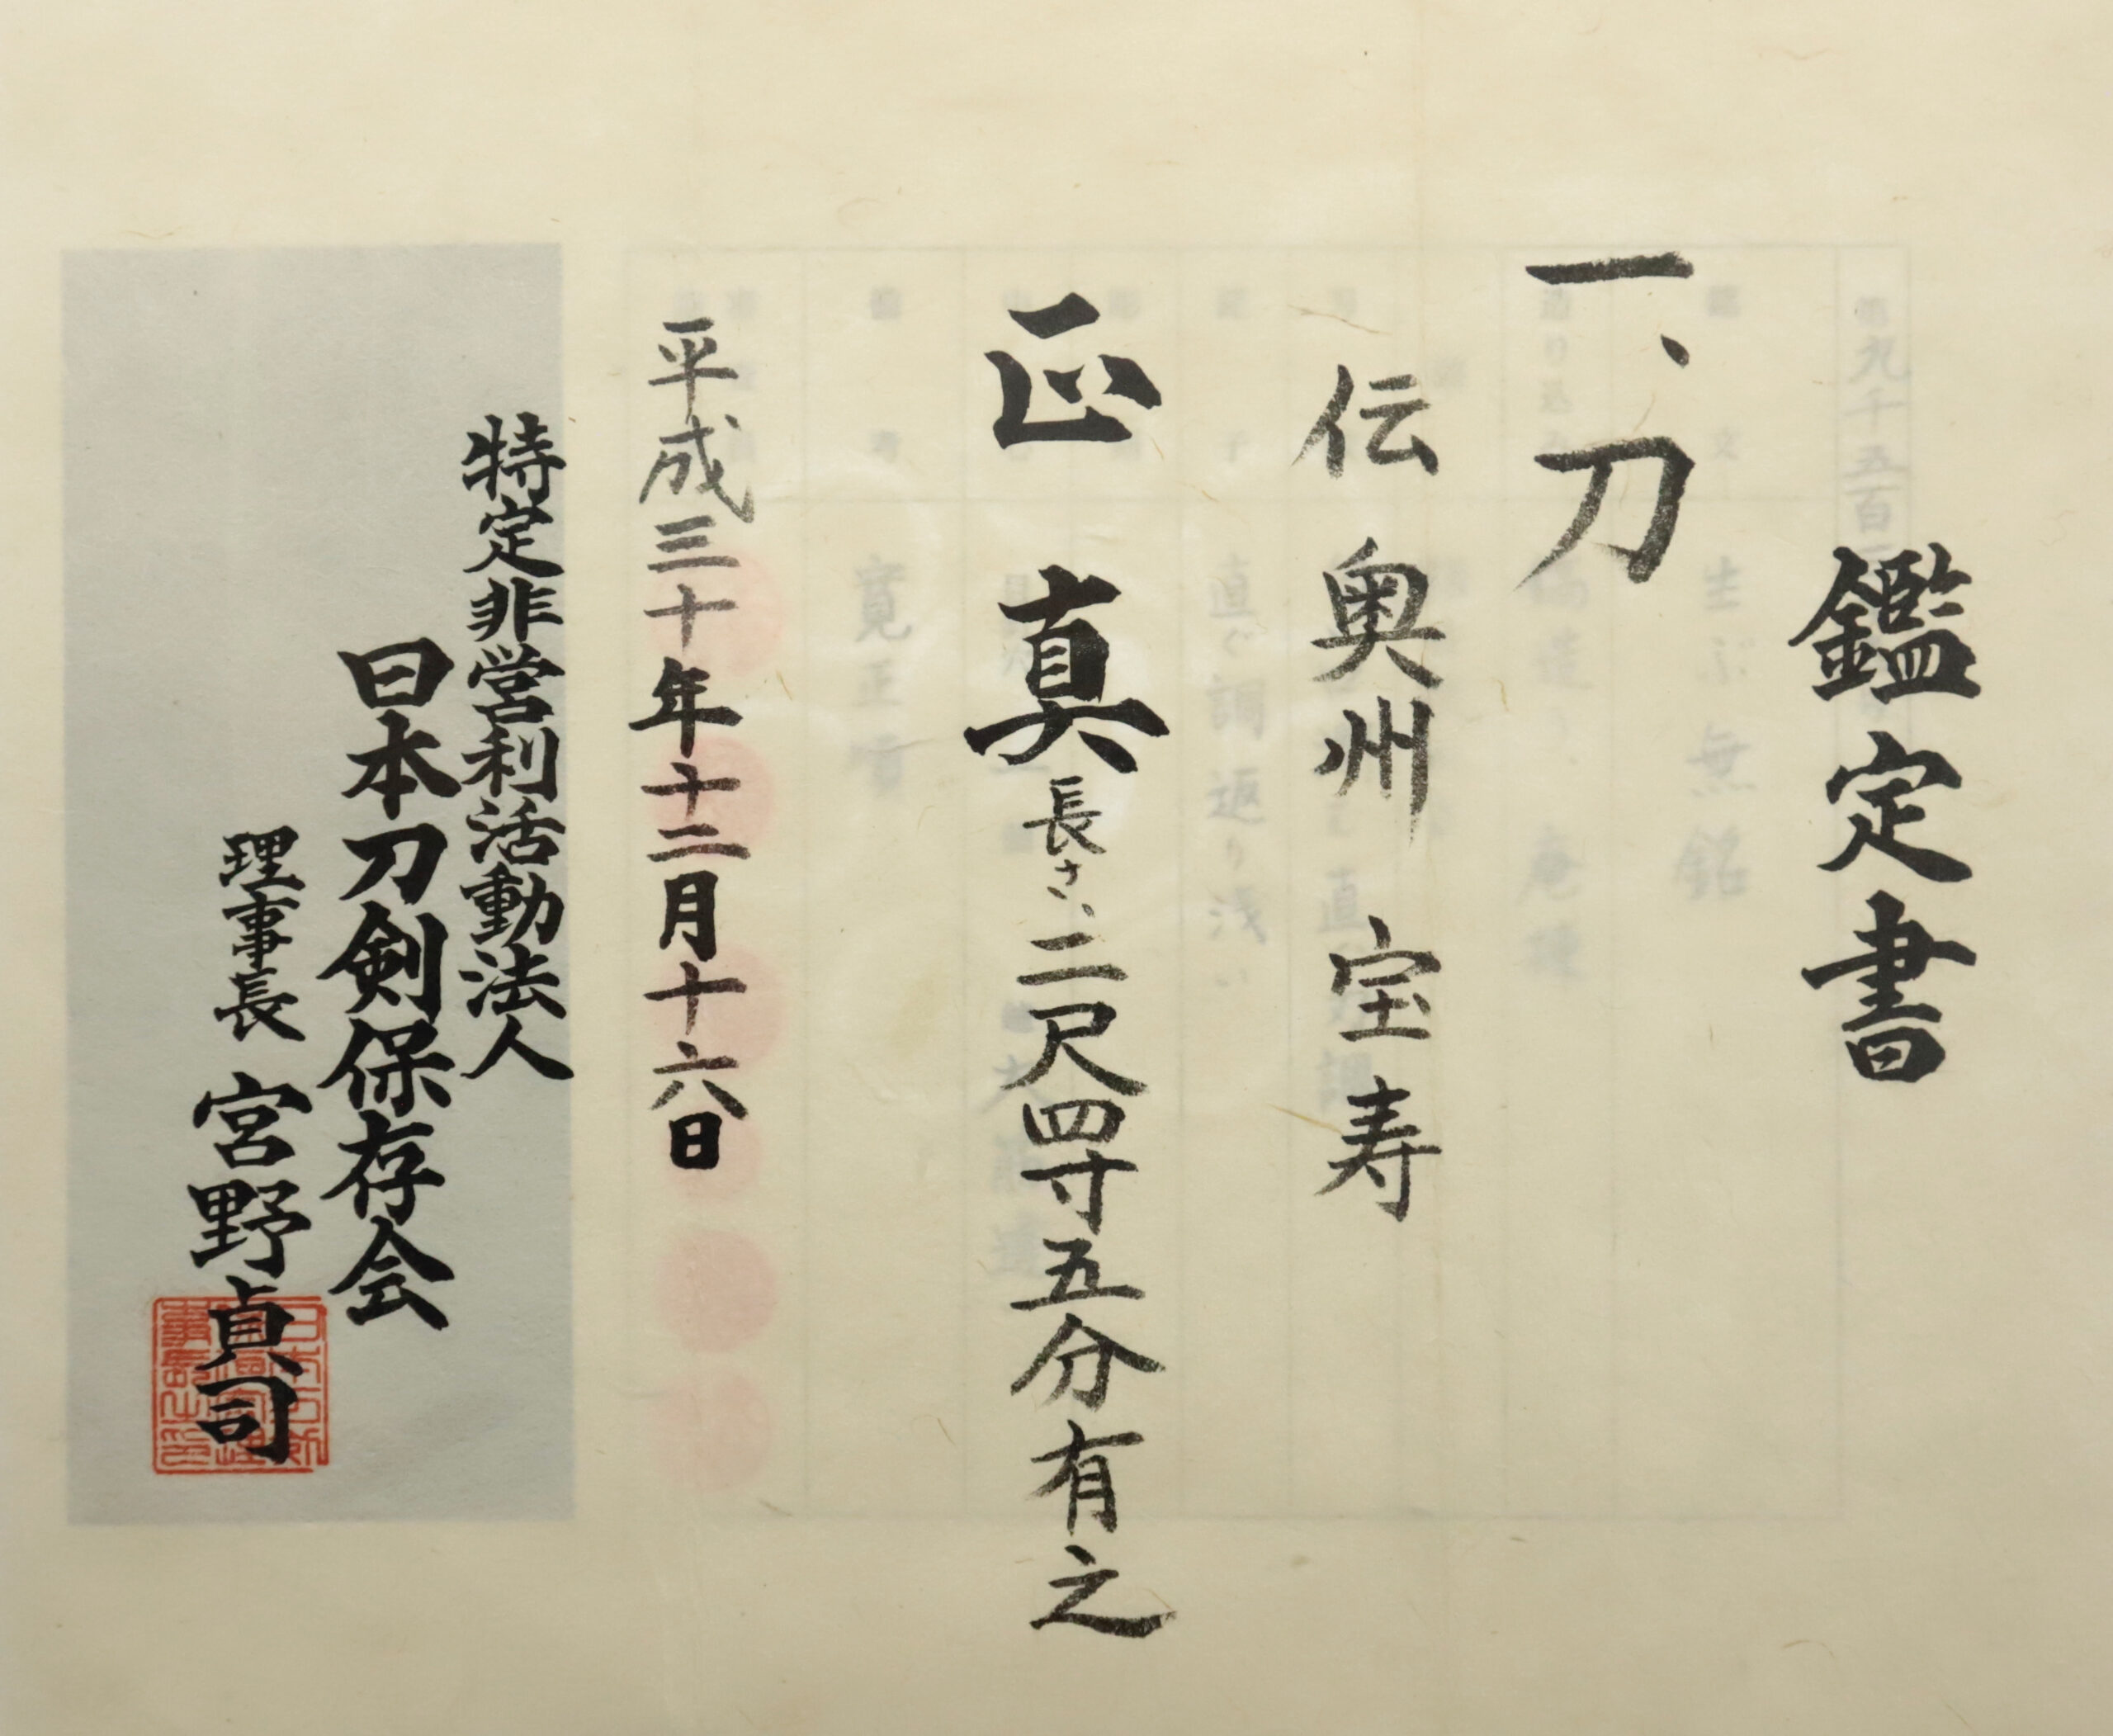 鑑定書
一、刀
伝 奥州 宝寿
正真 長さ、二尺四寸五分有之
平成三十年十二月十六日
特定非営利活動法人
日本刀剣保存会
理事長 宮野貞司